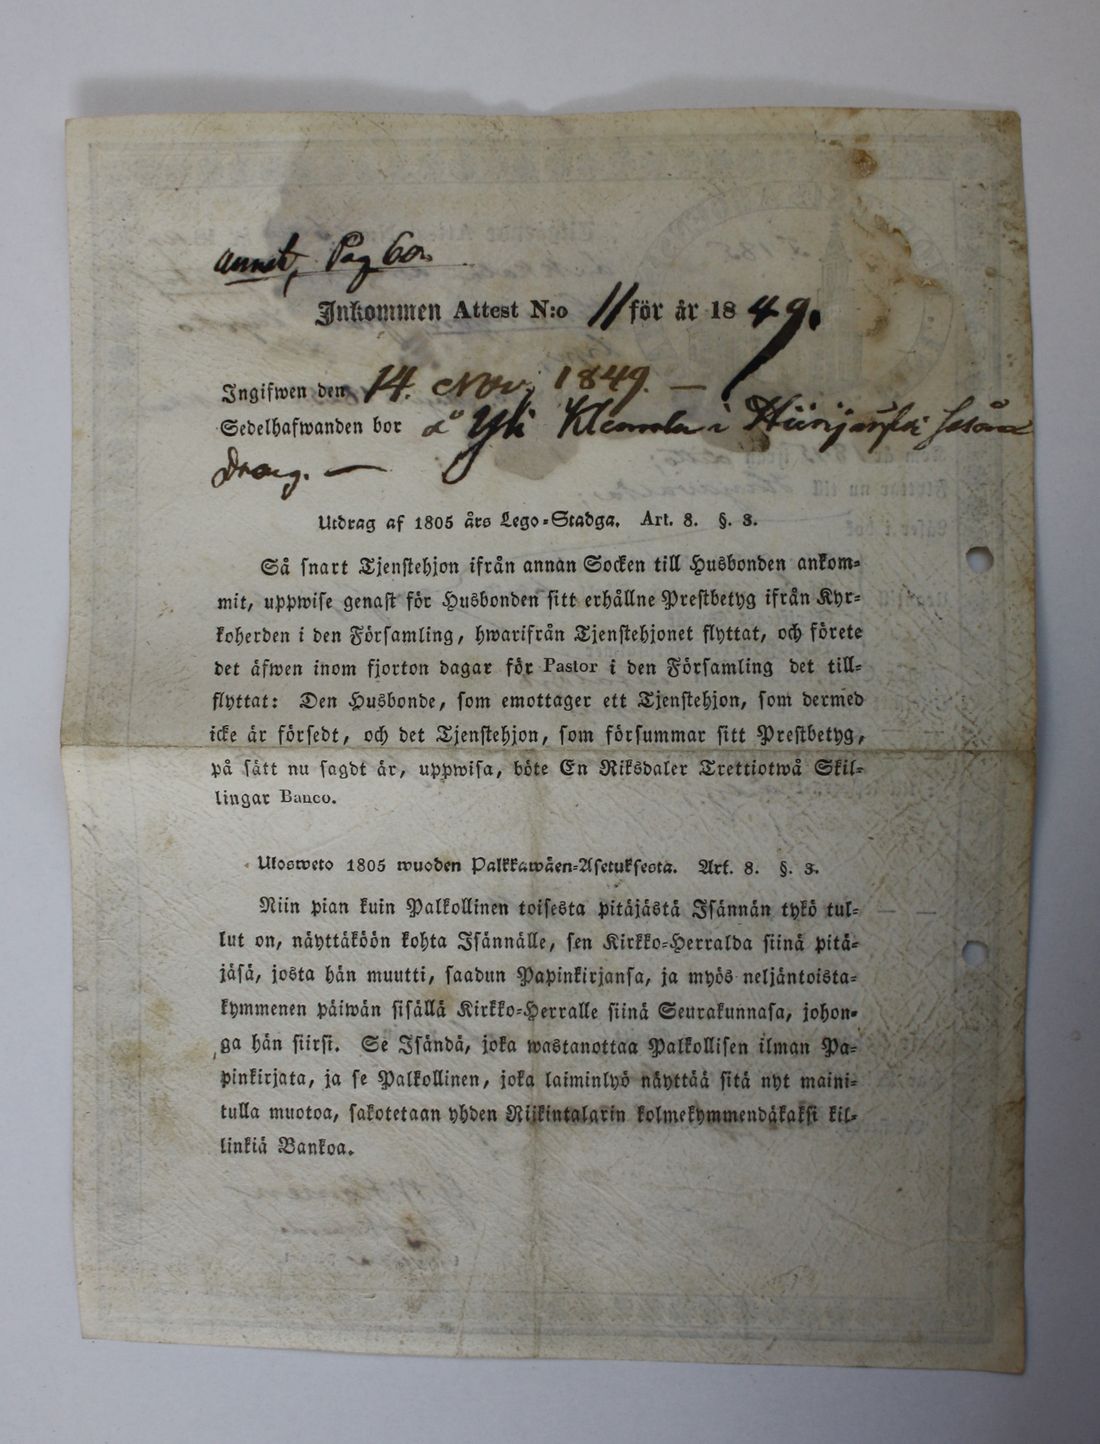 annot, Pag 60
Inkommen Attest N:o 11 för år 1849.
Ingifwen den 14. Nov. 1849. —
Sedelhafwanden bor å Yli Klemola i Hiirijärfvi såsom
Dräng. —
Utdrag af 1805 års Lego-Stadga. Art. 8. §. 3.
Så snart Tjenstehjon ifrån annan Socken till Husbonden ankom-
mit, uppwise genast för Husbonden sitt erhållne Prestbetyg ifrån Kyr-
koherden i den Församling, hwarifrån Tjenstehjonet flyttat, och förete
det äfwen inom fjorton dagar för Pastor i den Församling det till-
flyttat: Den Husbonde, som emottager ett Tjenstehjon, som dermed
icke är försedt, och det Tjenstehjon, som försummar sitt Prestbetyg,
på sätt nu sagdt är, uppwisa, böte En Riksdaler Trettiotwå Skil-
lingar Banco.
Ulosweto 1805 wuoden Palkkawäen-Asetuksesta. Art. 8. §. 3.
Niin pian kuin Palkollinen toisesta pitäjästä Isännän tykö tul-
lut on, näyttäköön kohta Isännälle, sen Kirkko-Herralda siinä pitä-
jäsä, josta hän muutti, saadun Papinkirjansa, ja myös neljäntoista-
kymmenen päiwän sisällä Kirkko-Herralle siinä Seurakunnasa, johon-
ga hän siirsi. Se Isändä, joka wastanottaa Palkollisen ilman Pa-
pinkirjata, ja se Palkollinen, joka laiminlyö näyttää sitä nyt maini-
tulla muotoa, sakotetaan yhden Riikintalarin kolmekymmendäkaksi kil-
linkiä Bankoa.